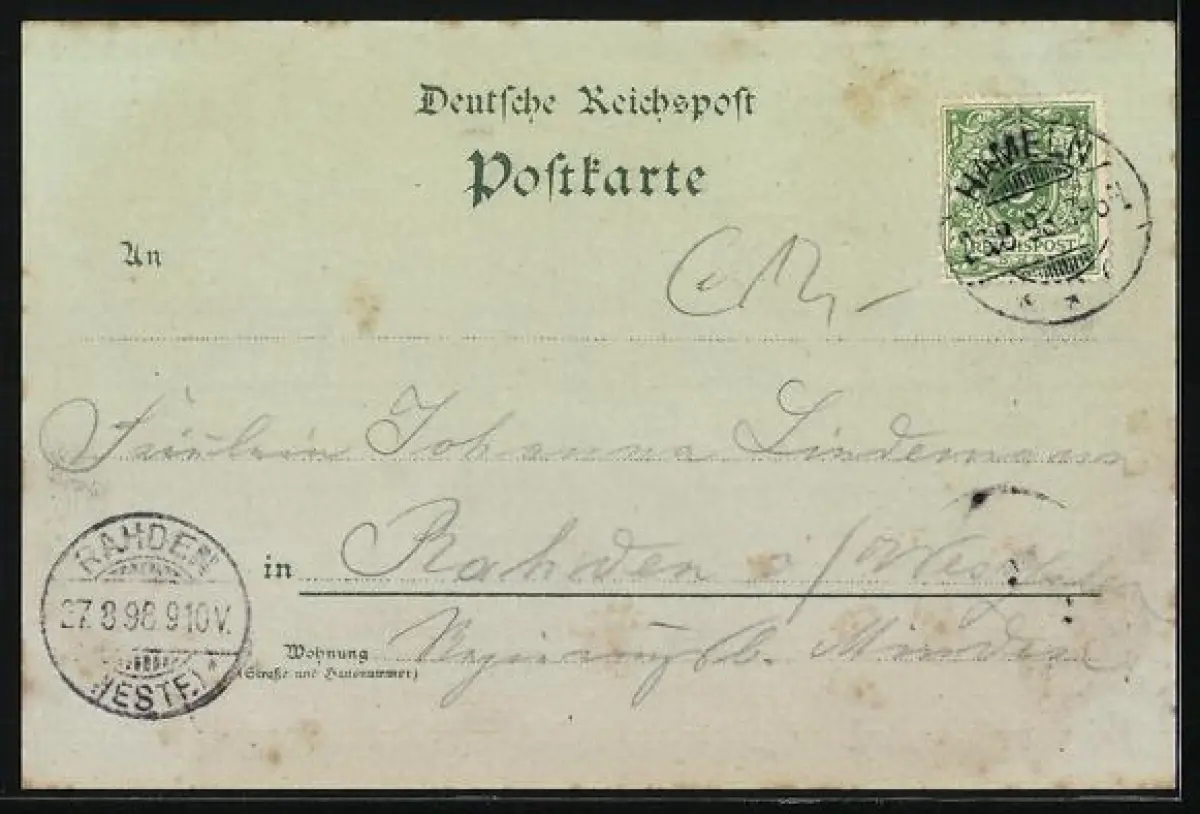 Deutsche Reichspost
Postkarte
HAMELN
REICHSPOST
An
Fräulein Johanna Lindemann
in Rahden / Westfalen
Wohnung Regierungsb. Minden
(Straße und Hausnummer)
RAHDEN
27.8.98.910V.
(WESTF.)